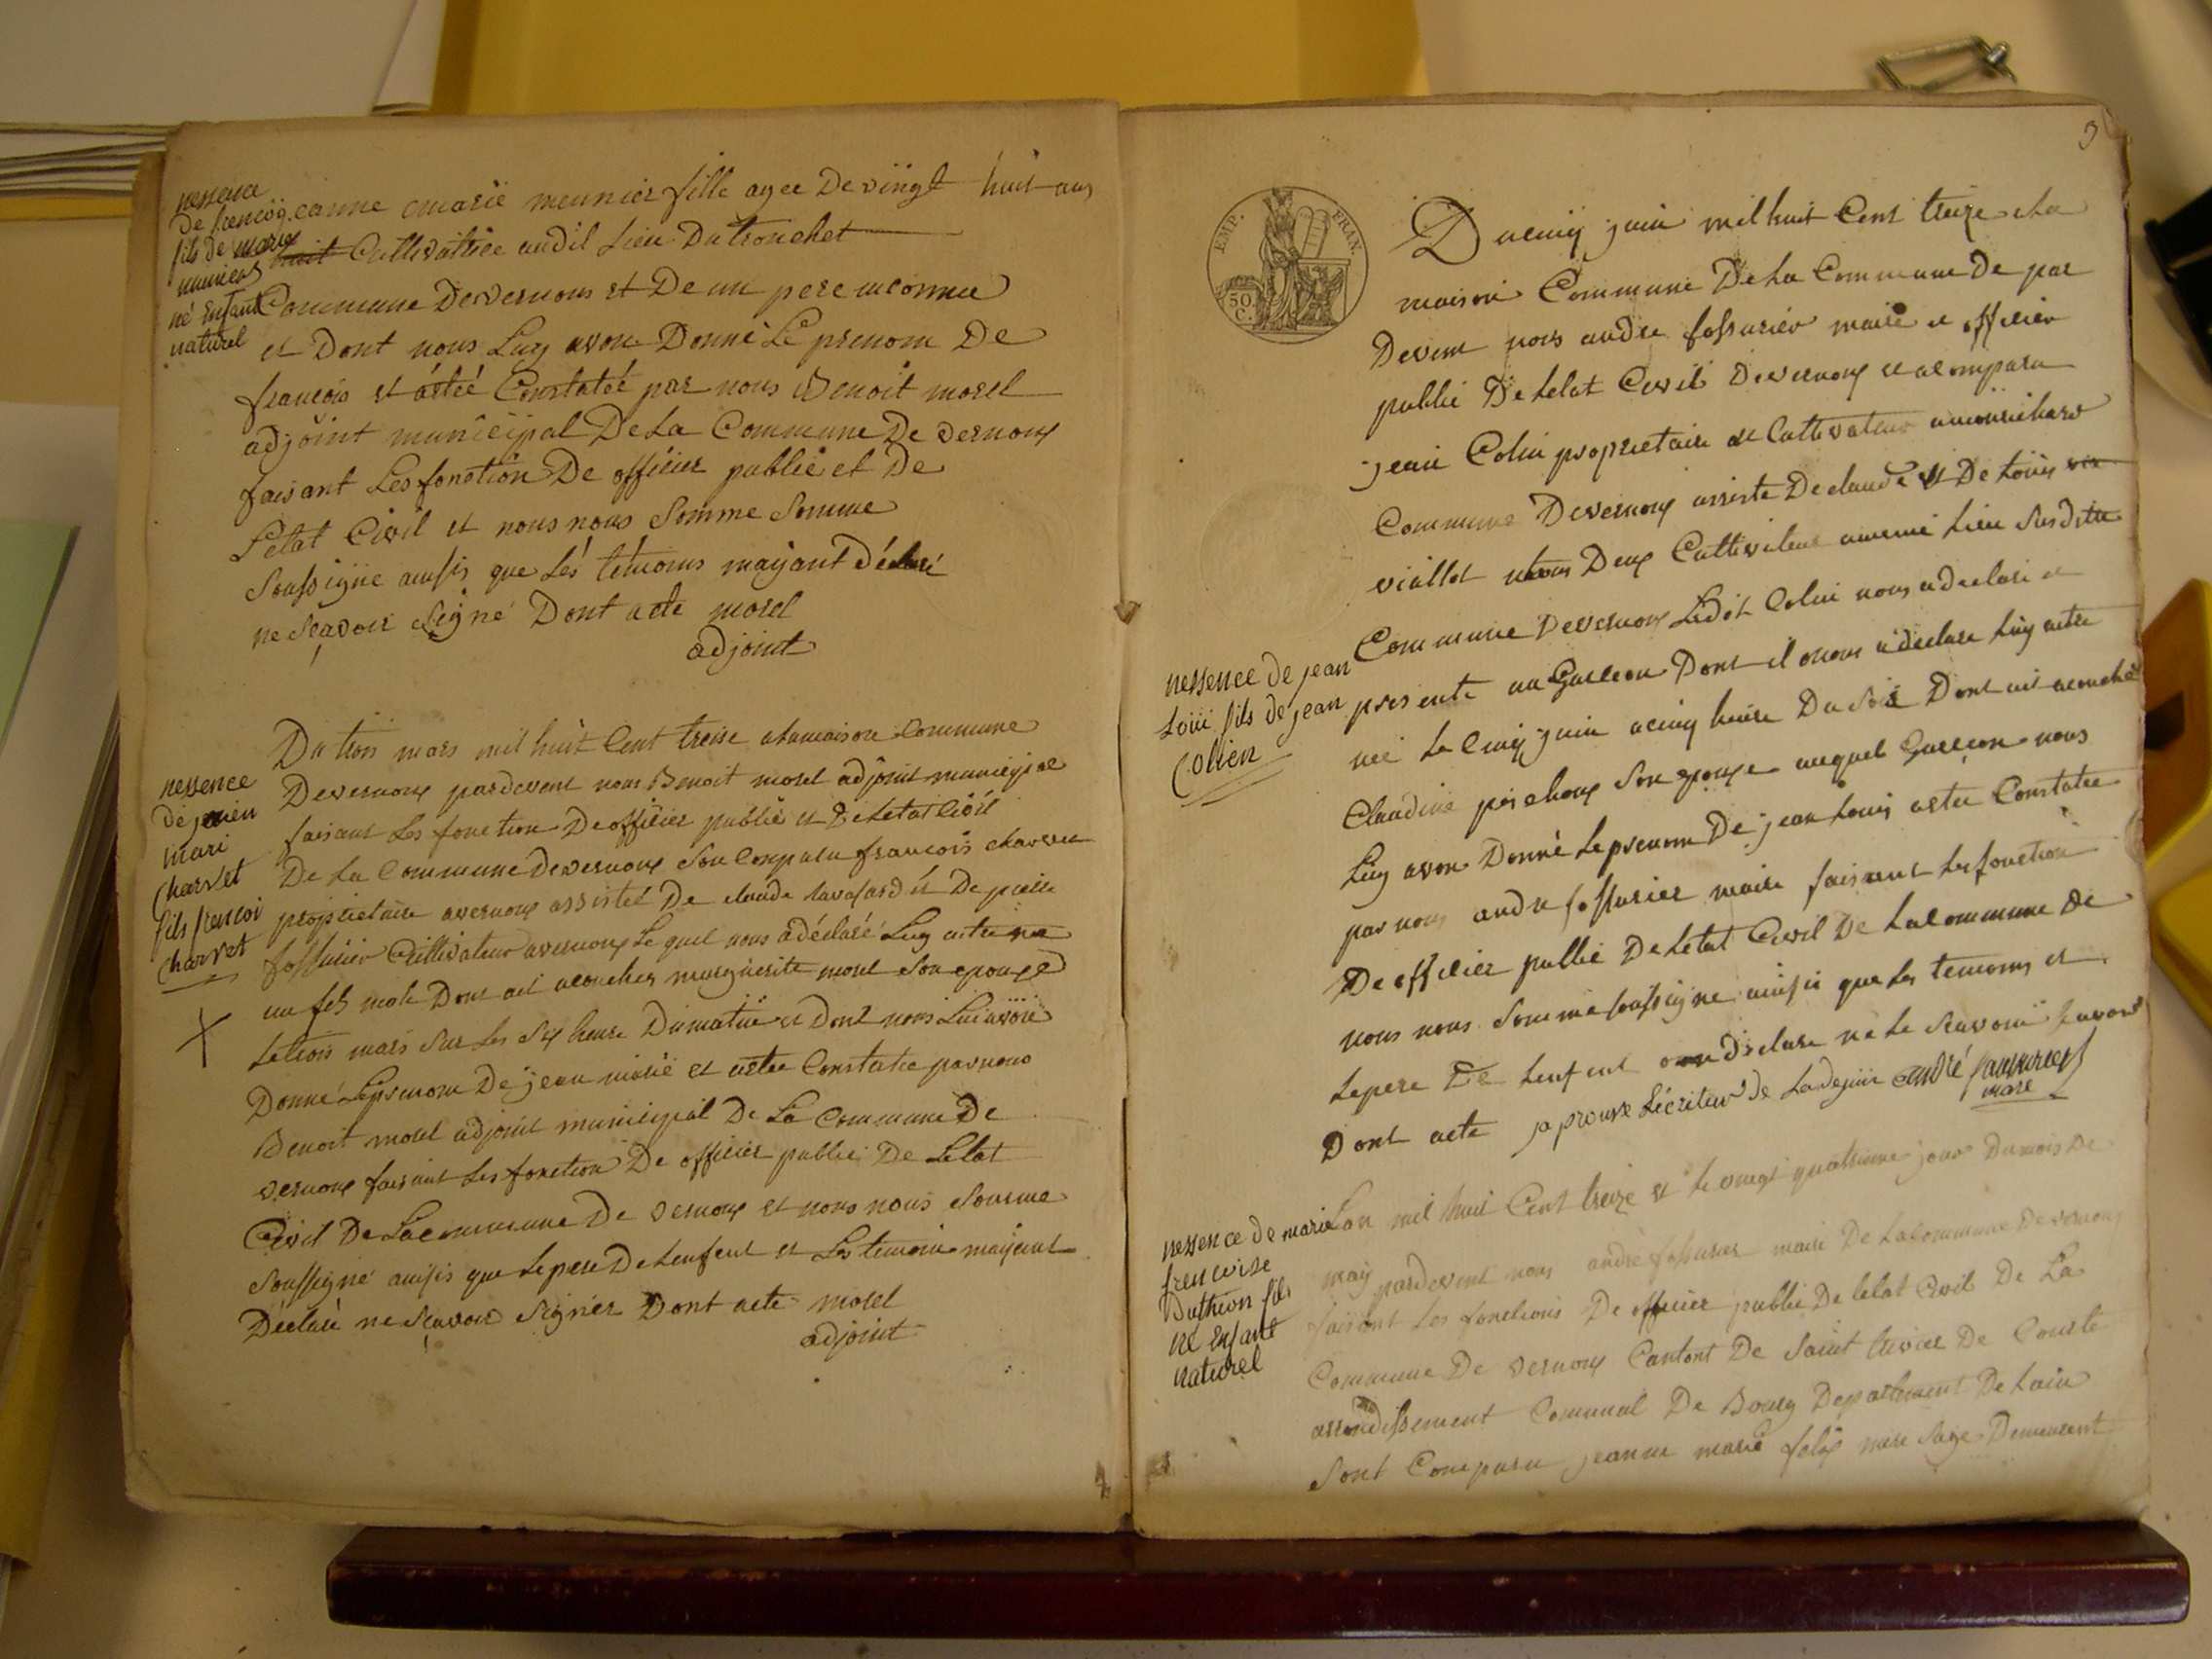 nessence
De francoi
fils de marie
munier
né Enfant
naturel
jeanne marie meunier fille agee De vingt huit ans
huit Cultivatrice audit Lieu Du tronchet
Commune De vernoux et De un pere inconnu
et Dont nous Luy avon Donné Le prenom De
francois et astéé Constatéé par nous Benoit morel
adjoint municipal De La Commune De vernoux
faisant Les fonction De officier publié et De
Letat Civil et nous nous Somme Somme
Soussigne ainsis que Lés témoins mayant déclaré
ne Sçavoir Signé Dont acte morel
adjoint
nessence
de jen
mari
charvet
fils francoi
charvet
Du trois mars mil huit Cent treise a la maison Commune
De vernoux pardevent nous Benoit morel adjoint municipal
faisant Les fonction De officier publié et De Letat Civil
De La Commune de vernoux Son Comparu francois charvet
proprietaire a vernoux assisté De claude et De pierre
fossurier Cultivateur a vernoux Le quel nous a déclaré Luy
un fils male Dont ait acoucher marguerite morel Son epouse
Le trois mars Sur Les Six heure Du matin et Dont nous Lui avon
Donné Le prenom De jean marie et astee Constatee par nous
Benoit morel adjoint municipal De La Commune De
vernoux faisant Les fonction De officier publie De Letat
Civil De La Commune De vernoux et nous nous Somme
Soussigné ainsis que Le pere De Lenfent et Les temoin mayant
Déclaré ne Sçavoir Signer Dont acte morel
adjoint
3
EMP. FRAN.
50 C.
Du cinq juin mil huit Cent treize a La
maison Commune De La Commune De par
Devent nous andre fossurier maire et officier
publié De Letat Civil De vernoux et a comparu
jean Colin proprietaire et Cultivateur
Commune De vernoux assisté De claude et De Louis
viallet tous Deux Cultivateur au meme Lieu Susditte
Commune De vernoux Ledit Colin nous a declare et
nessence de jean
Louii fils de jean
Collien
presente un Garcon Dont il nous a declare Luy
né Le cinq juin a cinq heure Du Soir Dont ait acouché
Claudine Son epouse auquel Garcon nous
Luy avon Donné Le prenom De jean Louis astee Constatee
par nous andre fossurier maire faisant Les fonction
De officier publié De Letat Civil De La Commune De
nous nous Somme soussigne ainsis que Les temoins et
Le pere De Lenfent on declare ne Le Scavoir
Dont acte japrouve Lécriteur De andré fassurier
mare
nessence de marie
frencoise
Duthion fils
né Enfant
naturel
Lan mil huit Cent treize et Le vingt quatrieme jour Du mois De
may pardevent nous andré fossurier maire De La Commune De vernoux
faisant Les fonctions De officier publié De Letat Civil De La
Commune De vernoux Cantont De Saint trivier De Courte
arrondissement Comunal De Bourg Departement De Lain
Sont Comparu jeanne marie felix mere Sage Demeurent